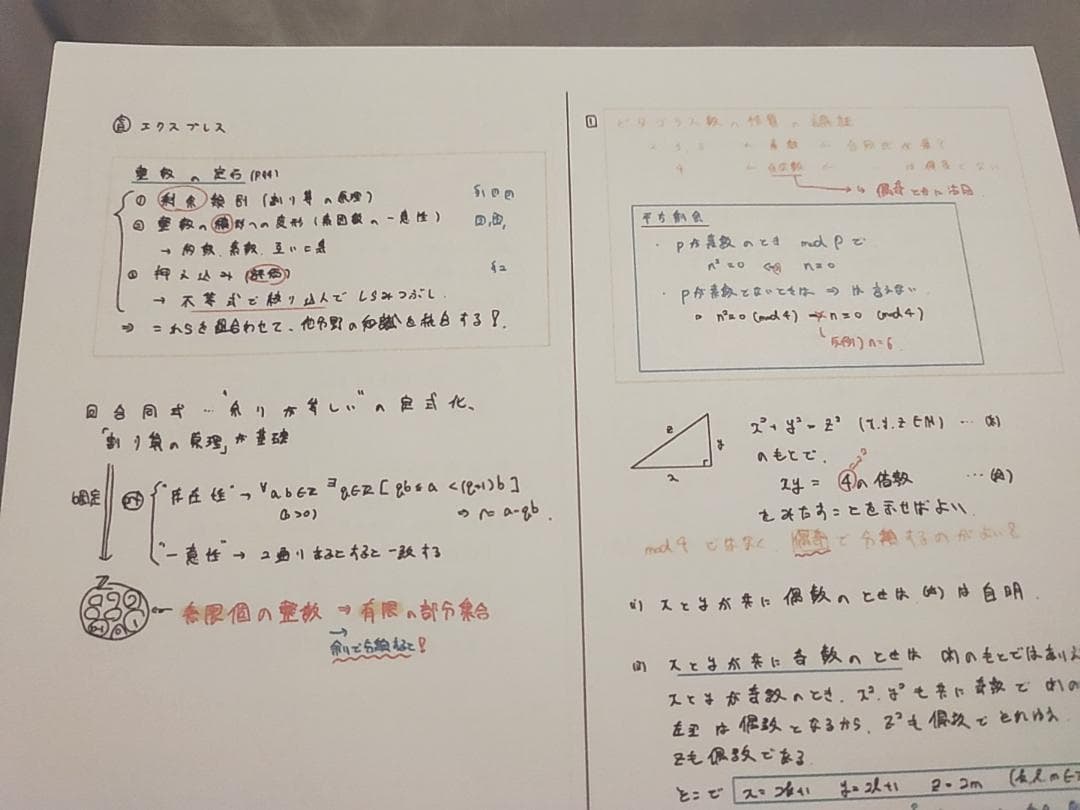 エクスプレス
整数の定石(P44)
① 剰余類別(割り算の原理)
② 整数の積形への変形(素因数の一意性)
→ 約数、素数、互いに素
③ 押え込み(評価)
→ 不等式で絞り込んでしらみつぶし
⇒ これらを組合わせて、他分野の知識を統合する!
回 合同式 … "余りが等しい"の定式化、
「割り算の原理」が基礎
b固定
"存在性" → ∀a,b∈Z ∃q∈Z [qb≦a<(q+1)b]
(b>0) ⇒ r=a-qb.
"一意性" → 2通りあるとすると一致する
Z
無限個の整数 ⇒ 有限の部分集合
余りで分類すると!
1 ピタゴラス数の性質の論証
2, 3, 5 ← 素数 ← 合同式が有?
4 ← 自然数 ←
偶奇ともに注目
平方剰余
・Pが素数のとき mod Pで
n²≡0 ⇔ n≡0
・Pが素数でないときは ⇒ は言えない
n²≡0 (mod 4) ⇏ n≡0 (mod 4)
反例) n=6
z y x
x²+y²=z² (x,y,z∈N) …
のもとで、
xy = ④の倍数 …
をみたすことを示せばよい
mod 4 ではなく、偶奇で分類するのがよい?
i) xとyが共に偶数のときは は自明.
ii) xとyが共に奇数のときは のもとではありえ
xとyが奇数のとき、x²,y²も共に奇数で の
左辺は偶数となるから、z²も偶数でそれゆえ
zも偶数である
そこで x=2k+1 y=2l+1 z=2m (k,l,m∈Z